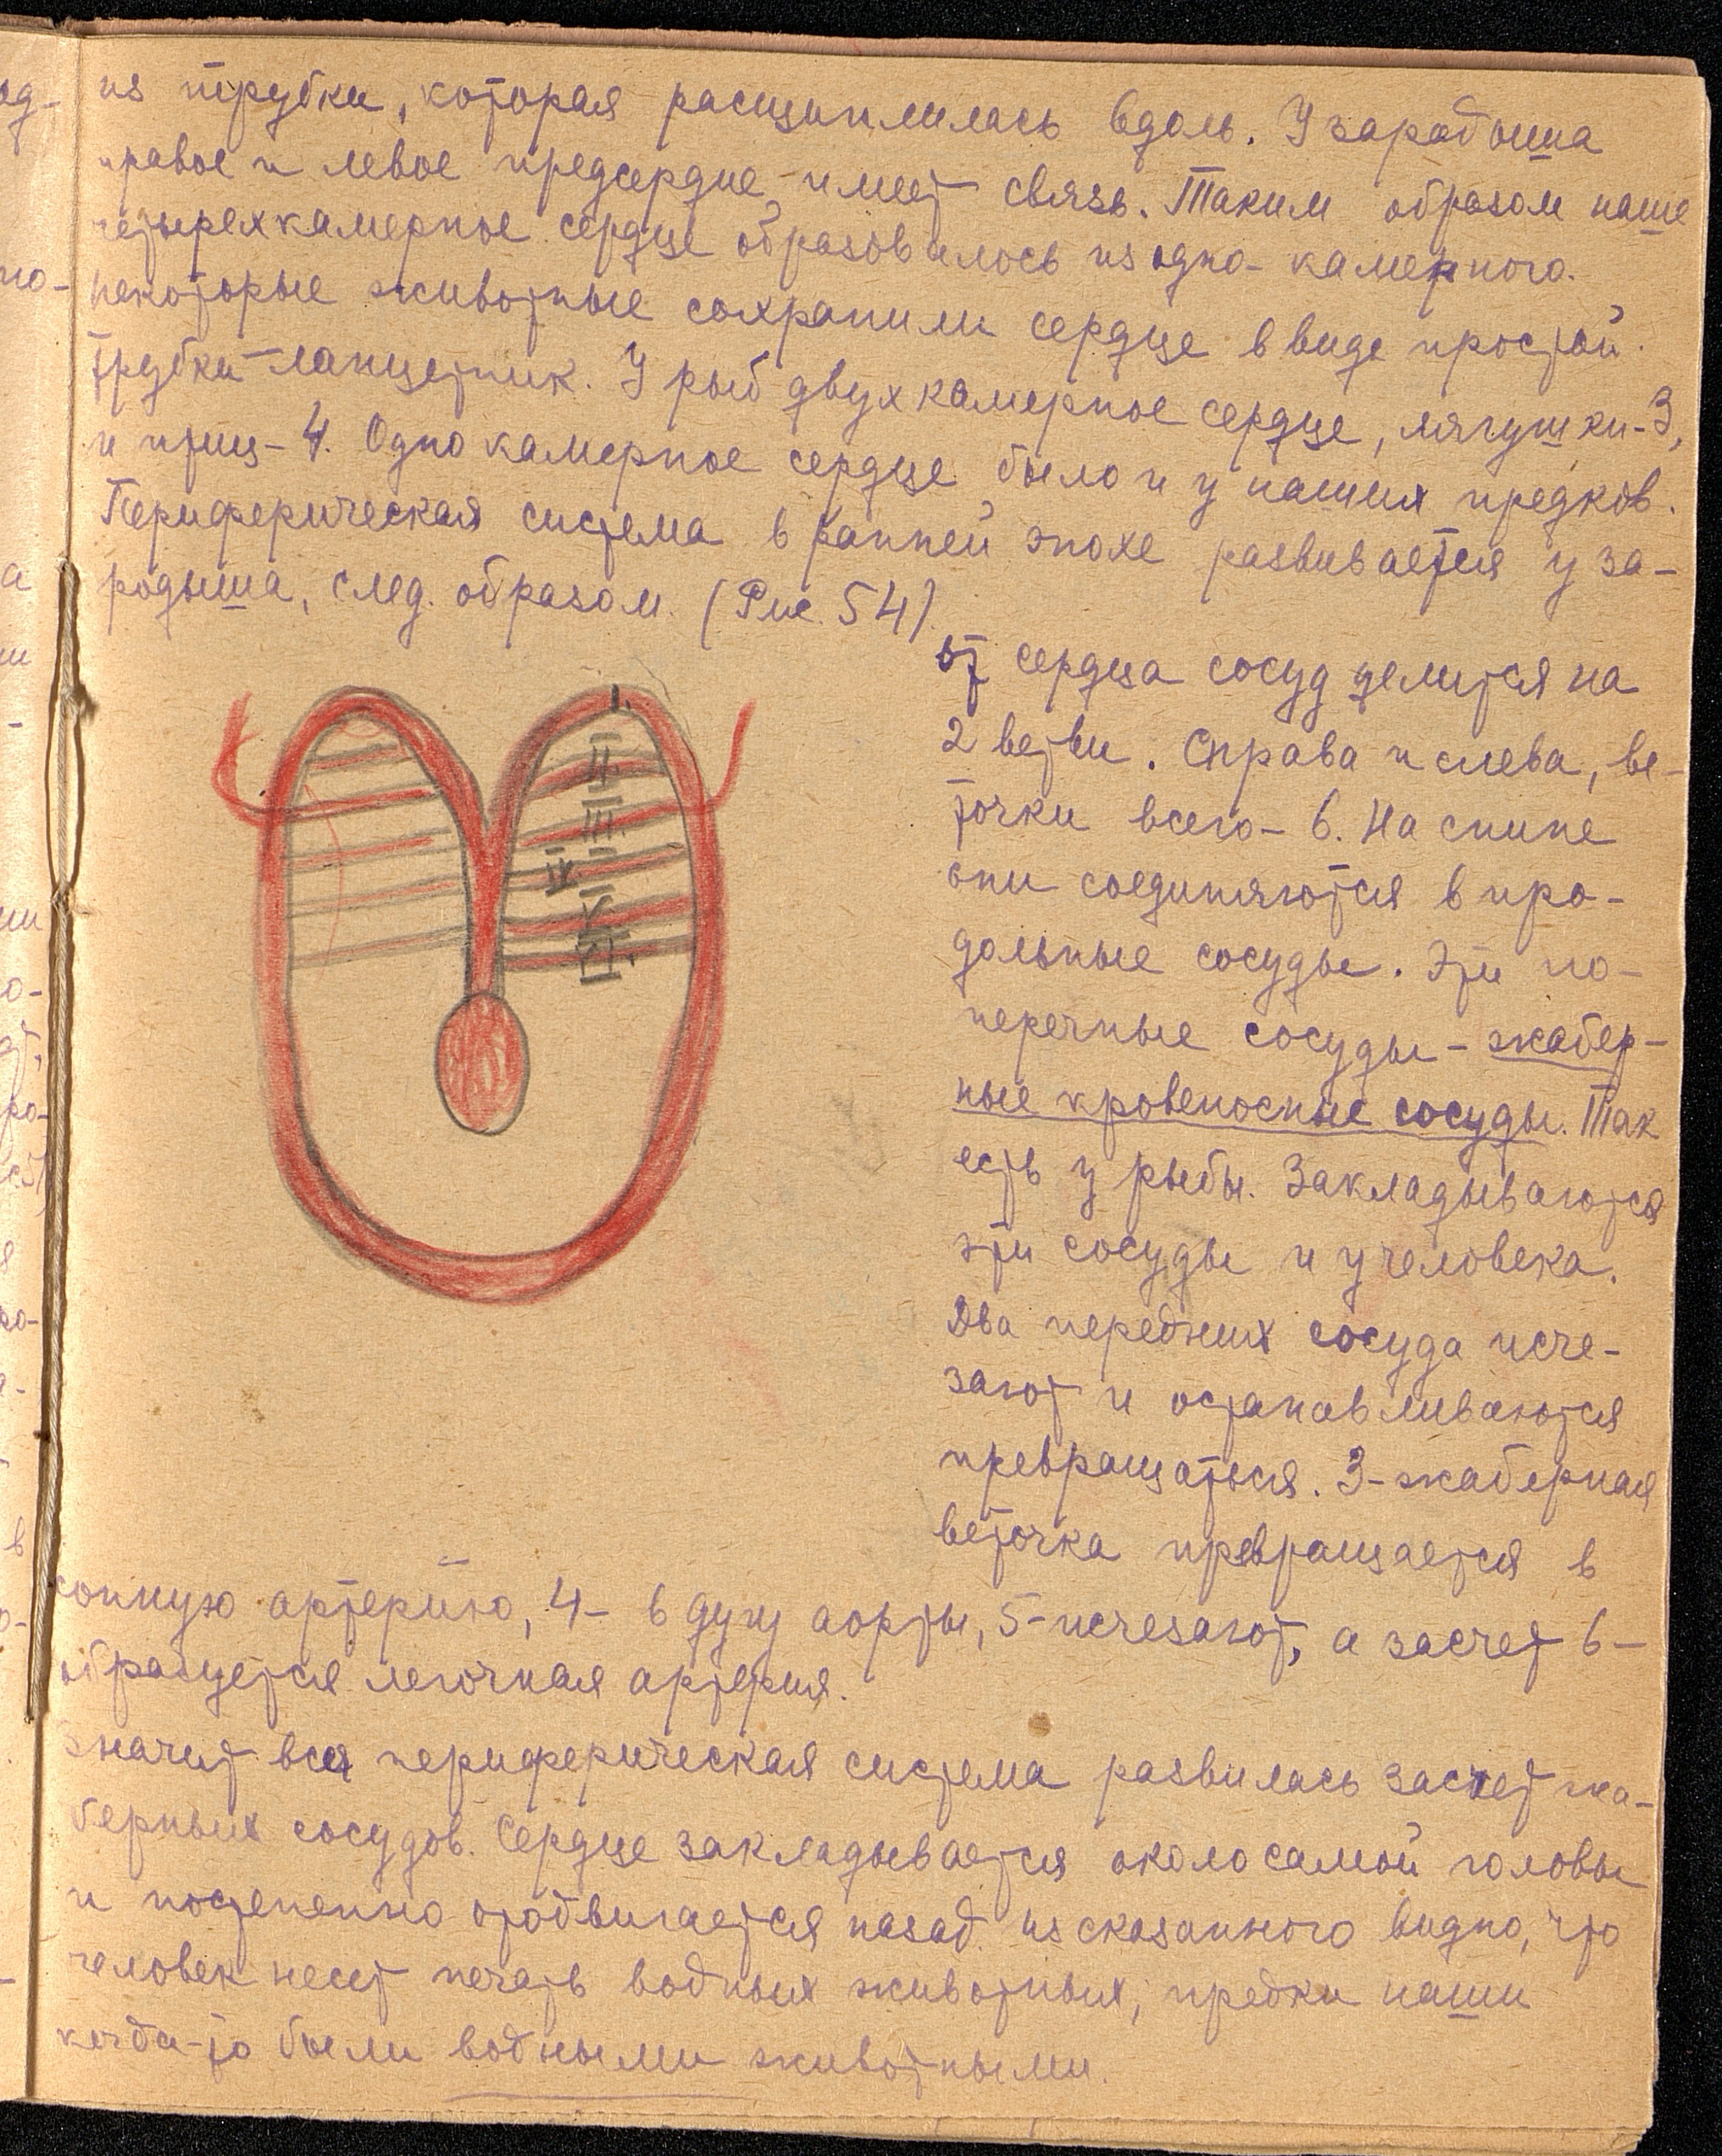 из трубки, которая расщипилась вдоль. У зародыша
правое и левое предсердие имеет связь. Таким образом наше
четырехкамерное сердце образовалось из одно-камерного.
Некоторые животные сохранили сердце в виде простой
трубки – ланцетник. У рыб двухкамерное сердце, лягушки-3,
и птиц-4. Однокамерное сердце было и у наших предков.
Периферическая система в ранней эпохе развивается у за-
родыша, след. образом. (Рис. 54)
от сердца сосуд делится на
2 ветви. Справа и слева, ве-
точки всего – 6. На спине
они соединяются в про-
дольные сосуды. Эти по-
перечные сосуды – жабер-
ные кровеносные сосуды. Так
есть у рыбы. Закладываются
эти сосуды и у человека.
Два передних сосуда исче-
зают и останавливаются
превращаться. 3-жаберная
веточка превращается в
сонную артерию, 4 – в дугу аорты, 5-исчезают, а засчет 6 –
образуется легочная артерия.
Значит вся периферическая система развилась засчет жа-
берных сосудов. Сердце закладывается около самой головы
и постепенно отодвигается назад. из сказанного видно, что
человек несет печать водных животных, предки наши
когда-то были водными животными.
I.
II
III.
IV
V
VI.